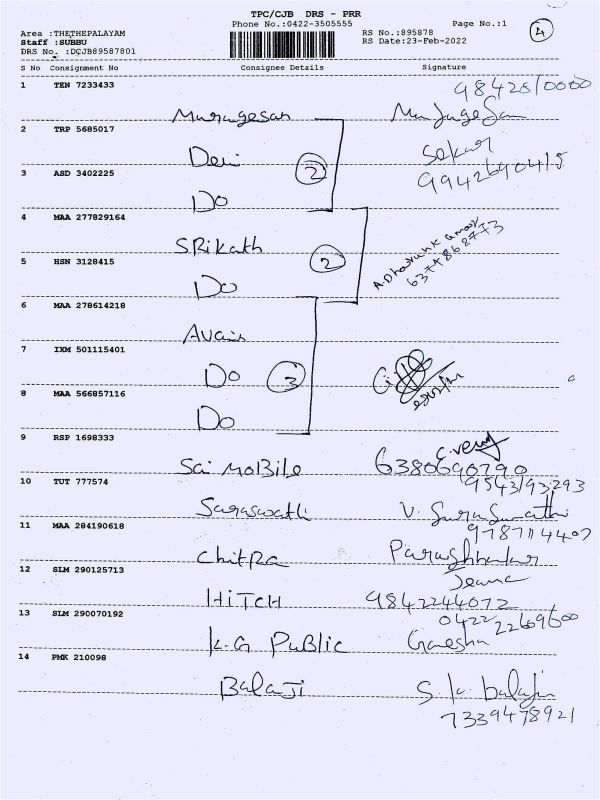 TPC/CJB DRS - PRR
Phone No.:0422-3505555
Page No.:1
4
Area :THETHEPALAYAM
Staff :SUBBU
DRS No. :DCJB89587801
RS No.:895878
RS Date:23-Feb-2022
S No Consignment No Consignee Details Signature
1 TEN 7233433
98428/0000
Murugesan
2 TRP 5685017
Devi Sekar
3 ASD 3402225
2
9942690415
Do
4 MAA 277829164
SRikath
5 HSN 3128415
2
6374868773
Do
6 MAA 278614218
7 IXM 501115401
Do 3
8 MAA 566857116
Do
9 RSP 1698333
Sai MoBile 6380690790
10 TUT 777574
9543193293
Saraswathi
11 MAA 284190618
ChitRa
12 SLM 290125713
HiTCH 9842244072
13 SLM 290070192
0422 2269600
K.G PuBlic Ganesha
14 PMK 210098
BalaJi S.K. balaji
7339478921